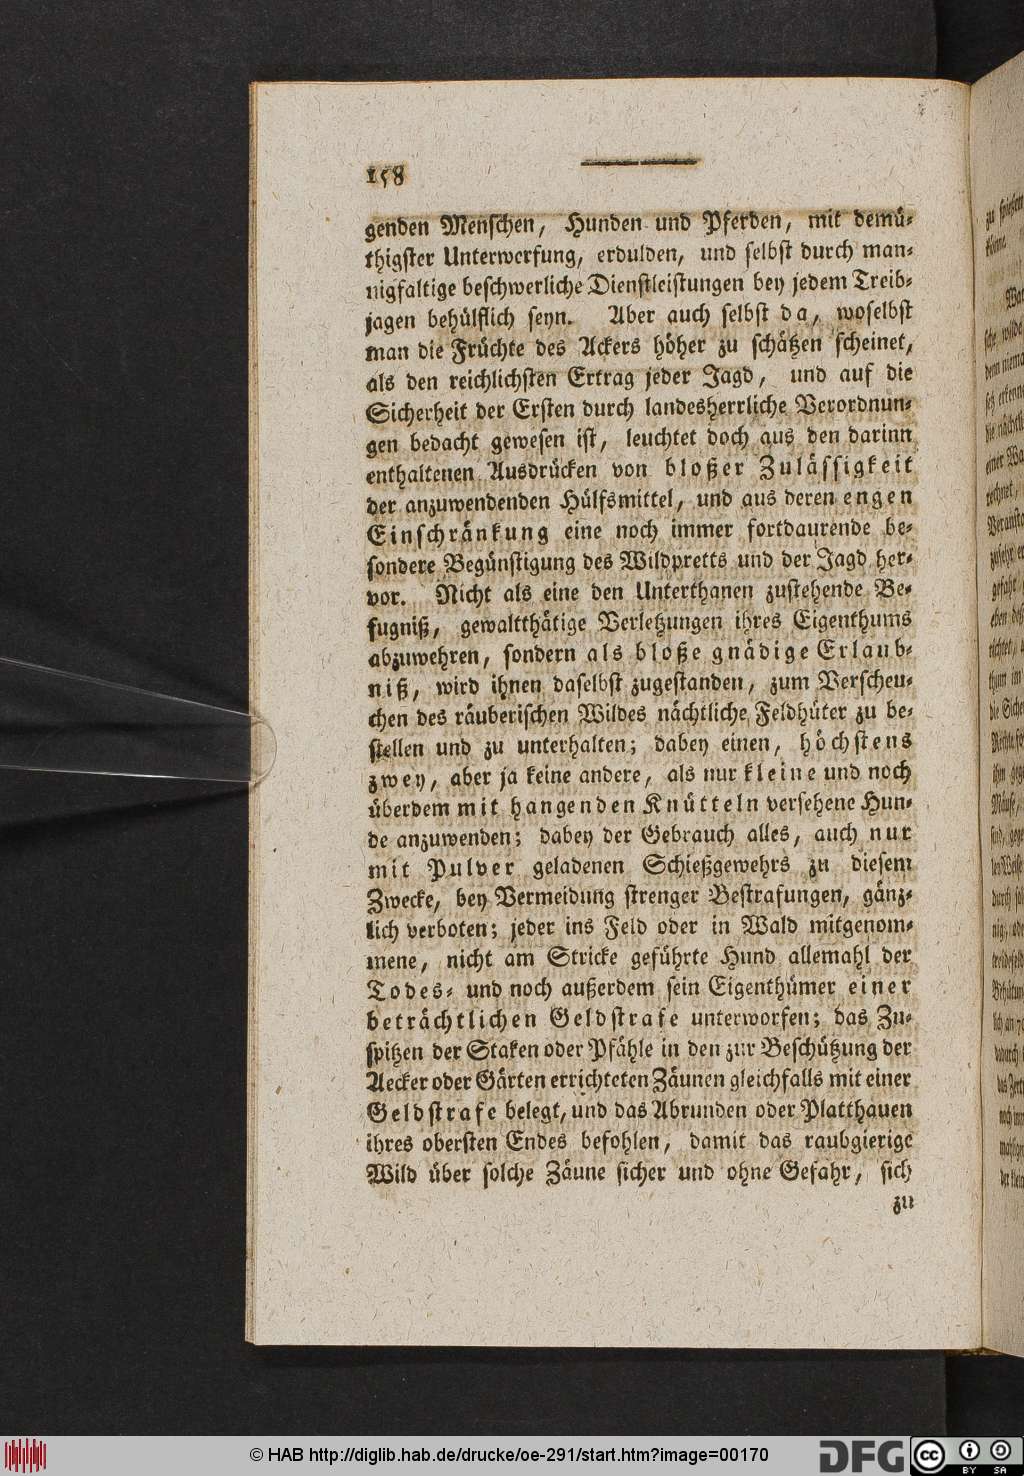 158
genden Menschen, Hunden und Pferden, mit demü-
thigster Unterwerfung, erdulden, und selbst durch man-
nigfaltige beschwerliche Dienstleistungen bey jedem Treib-
jagen behülflich seyn. Aber auch selbst da, woselbst
man die Früchte des Ackers höher zu schätzen scheinet,
als den reichlichsten Ertrag jeder Jagd, und auf die
Sicherheit der Ersten durch landesherrliche Verordnun-
gen bedacht gewesen ist, leuchtet doch aus den darinn
enthaltenen Ausdrücken von bloßer Zulässigkeit
der anzuwendenden Hülfsmittel, und aus deren engen
Einschränkung eine noch immer fortdaurende be-
sondere Begünstigung des Wildpretts und der Jagd her-
vor. Nicht als eine den Unterthanen zustehende Be-
fugniß, gewaltthätige Verletzungen ihres Eigenthums
abzuwehren, sondern als bloße gnädige Erlaub-
niß, wird ihnen daselbst zugestanden, zum Verscheu-
chen des räuberischen Wildes nächtliche Feldhüter zu be-
stellen und zu unterhalten; dabey einen, höchstens
zwey, aber ja keine andere, als nur kleine und noch
überdem mit hangenden Knütteln versehene Hun-
de anzuwenden; dabey der Gebrauch alles, auch nur
mit Pulver geladenen Schießgewehrs zu diesem
Zwecke, bey Vermeidung strenger Bestrafungen, gänz-
lich verboten; jeder ins Feld oder in Wald mitgenom-
mene, nicht am Stricke geführte Hund allemahl der
Todes- und noch außerdem sein Eigenthümer einer
beträchtlichen Geldstrafe unterworfen; das Zu-
spitzen der Staken oder Pfähle in den zur Beschützung der
Aecker oder Gärten errichteten Zäunen gleichfalls mit einer
Geldstrafe belegt, und das Abrunden oder Platthauen
ihres obersten Endes befohlen, damit das raubgierige
Wild über solche Zäune sicher und ohne Gefahr, sich
zu
© HAB http://diglib.hab.de/drucke/oe-291/start.htm?image=00170
DFG
cc BY SA